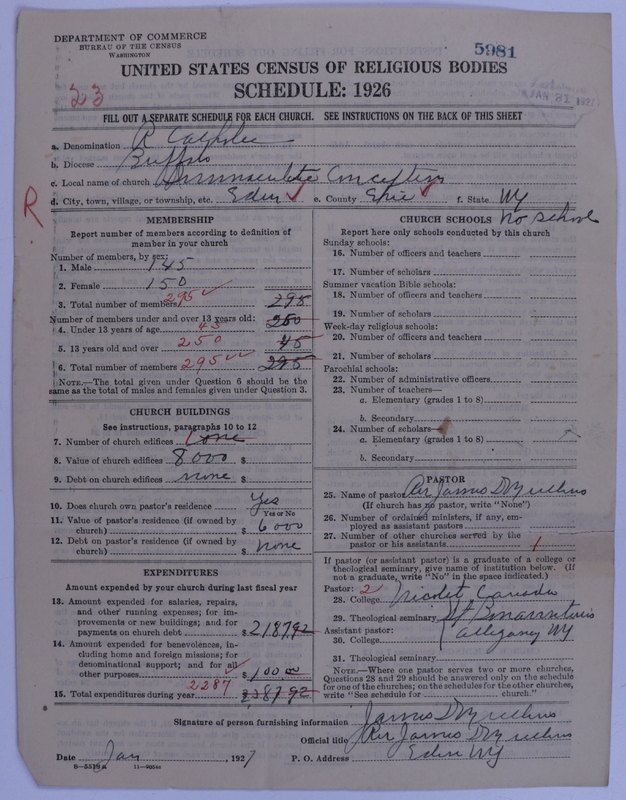 DEPARTMENT OF COMMERCE
BUREAU OF THE CENSUS
WASHINGTON
5981
UNITED STATES CENSUS OF RELIGIOUS BODIES
SCHEDULE: 1926
23
JAN 31 1927
FILL OUT A SEPARATE SCHEDULE FOR EACH CHURCH. SEE INSTRUCTIONS ON THE BACK OF THIS SHEET
a. Denomination R Catholic
b. Diocese Buffalo
c. Local name of church Immaculate Conception
d. City, town, village, or township, etc. Eden e. County Erie f. State NY
R
MEMBERSHIP
Report number of members according to definition of
member in your church
Number of members, by sex:
1. Male 145
2. Female 150
3. Total number of members 295 295
Number of members under and over 13 years old:
4. Under 13 years of age 45 250
5. 13 years old and over 250 45
6. Total number of members 295 295
NOTE.—The total given under Question 6 should be the
same as the total of males and females given under Question 3.
CHURCH BUILDINGS
See instructions, paragraphs 10 to 12
7. Number of church edifices one
8. Value of church edifices 8000 $
9. Debt on church edifices none $
10. Does church own pastor's residence Yes
Yes or No
11. Value of pastor's residence (if owned by
church) $ 6000
12. Debt on pastor's residence (if owned by
church) $ none
EXPENDITURES
Amount expended by your church during last fiscal year
13. Amount expended for salaries, repairs,
and other running expenses; for im-
provements or new buildings; and for
payments on church debt $ 2187 92
14. Amount expended for benevolences, in-
cluding home and foreign missions; for
denominational support; and for all
other purposes $ 100 00
15. Total expenditures during year 2287 2387 92
CHURCH SCHOOLS No School
Report here only schools conducted by this church
Sunday schools:
16. Number of officers and teachers
17. Number of scholars
Summer vacation Bible schools:
18. Number of officers and teachers
19. Number of scholars
Week-day religious schools:
20. Number of officers and teachers
21. Number of scholars
Parochial schools:
22. Number of administrative officers
23. Number of teachers—
a. Elementary (grades 1 to 8)
b. Secondary
24. Number of scholars—
a. Elementary (grades 1 to 8)
b. Secondary
PASTOR
25. Name of pastor Rev James D
(If church has no pastor, write "None")
26. Number of ordained ministers, if any, em-
ployed as assistant pastors
27. Number of other churches served by the
pastor or his assistants 1
If pastor (or assistant pastor) is a graduate of a college or
theological seminary, give name of institution below. (If
not a graduate, write "No" in the space indicated.)
Pastor: 2
28. College Nicolet Canada
29. Theological seminary St Bonaventure
Assistant pastor: Allegany NY
30. College
31. Theological seminary
NOTE.—Where one pastor serves two or more churches,
Questions 28 and 29 should be answered only on the schedule
for one of the churches; on the schedules for the other churches,
write "See schedule for church."
Signature of person furnishing information James D
Official title Rev James D
Date Jan , 1927 P. O. Address Eden NY
8—5519a 11—9054a